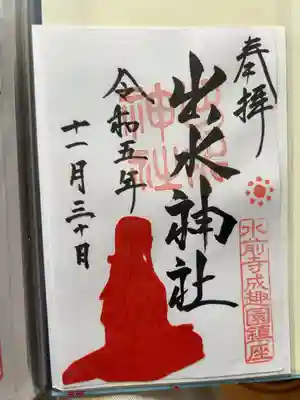 奉拝
水前寺成趣園鎮座
出水神社
出水神社
令和五年
十一月三十日